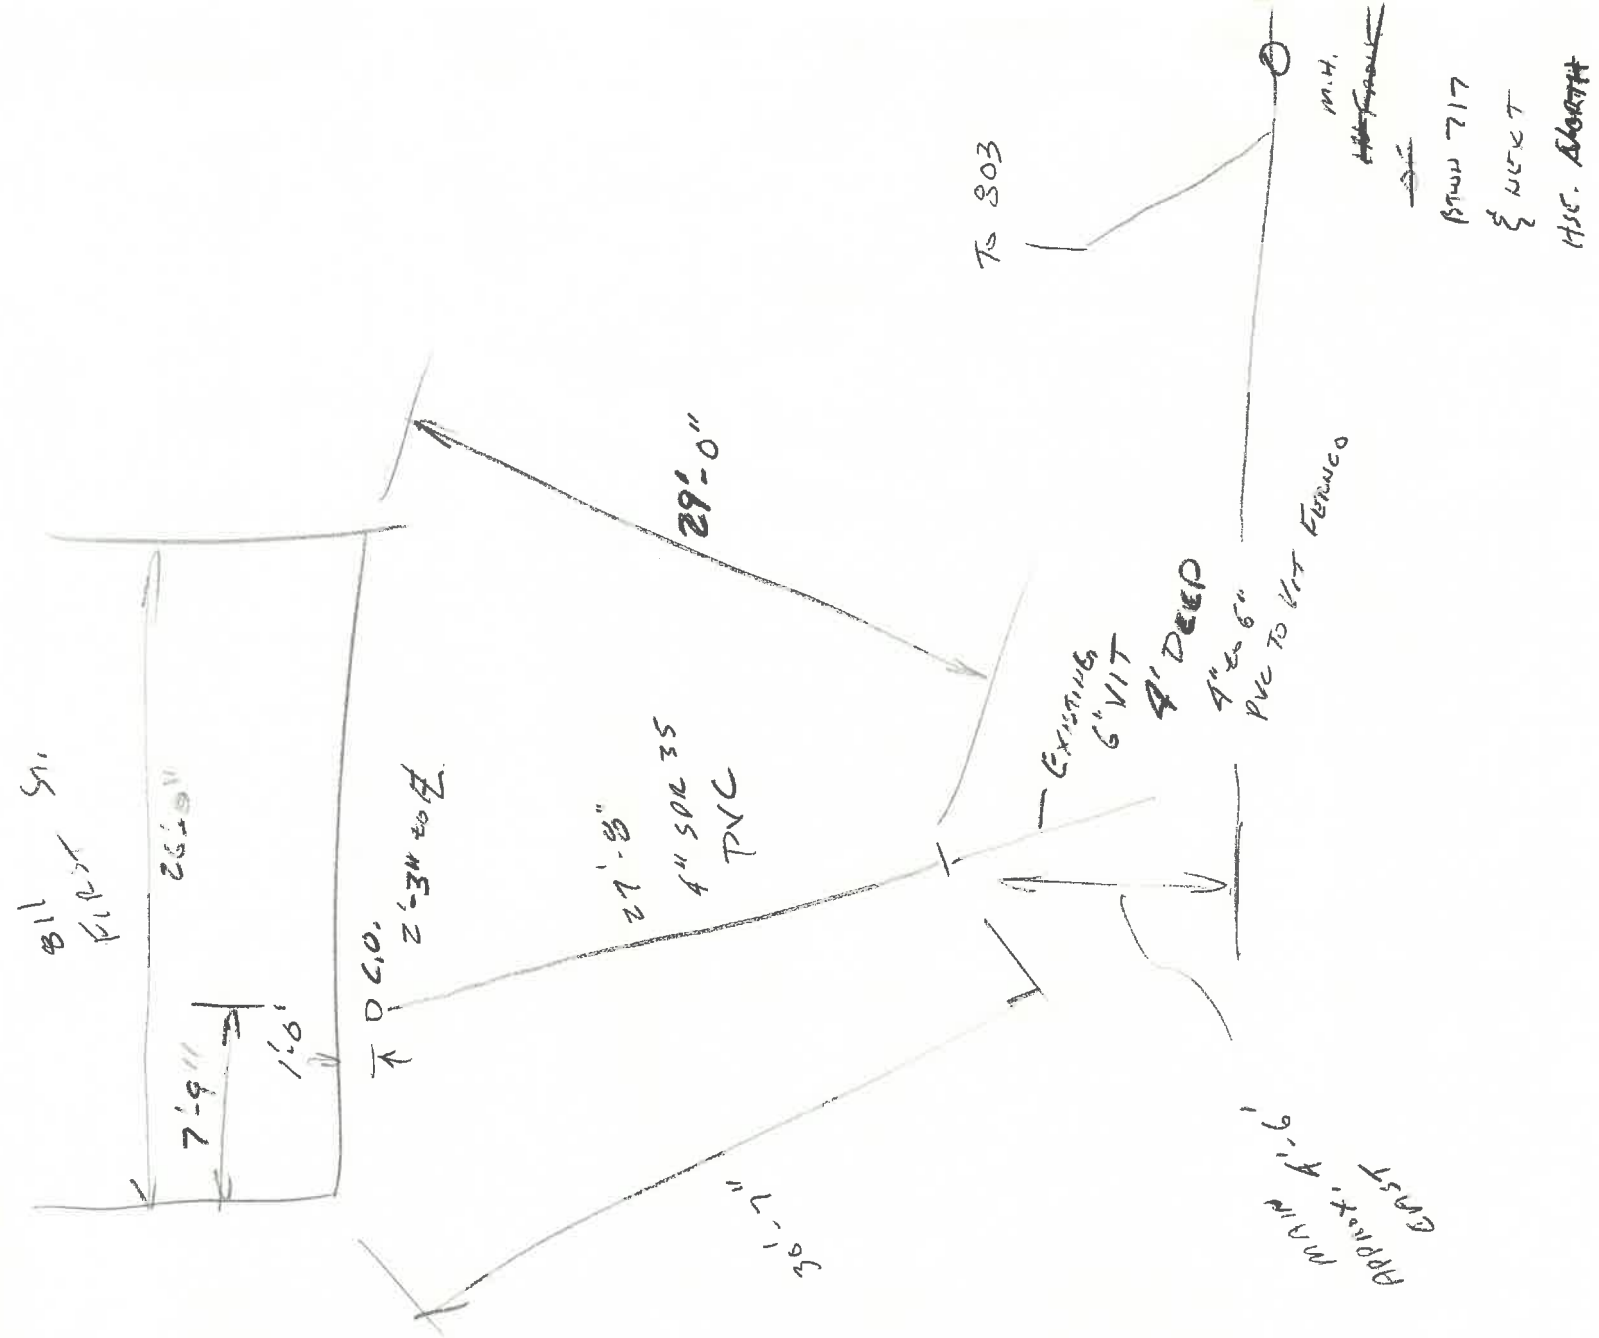 811
FIRST ST.
26'-0"
7'-9"
1'-0'
C.O.
2'-3" to ℄
27'-8"
4" SDR 35
PVC
29'-0"
30'-7"
EXISTING
6" VIT
4' DEEP
4" to 6"
PVC TO VIT FERNCO
MAIN
APPROX. 4'-6'
EAST
TO 803
M.H.
BTWN 717
& NEXT
HSE. NORTH